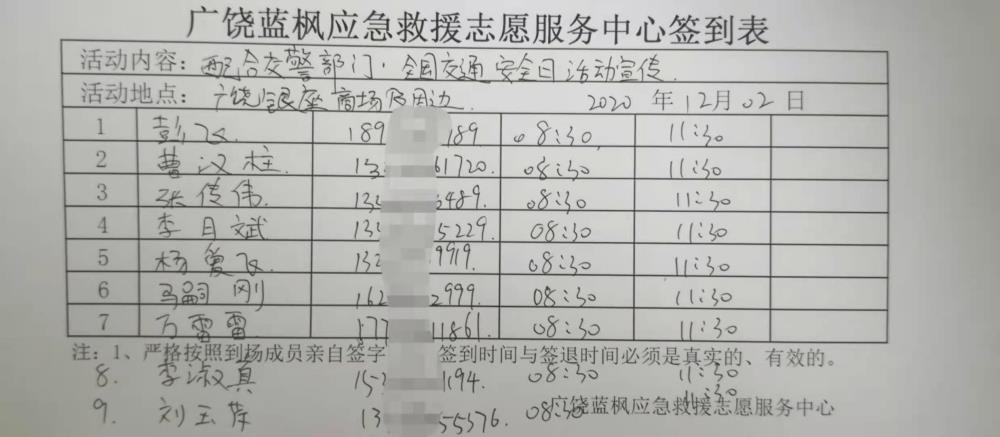 广饶蓝枫应急救援志愿服务中心签到表
活动内容：配合交警部门·全国交通安全日活动宣传.
活动地点：广饶银座商场及周边 2020 年 12月 02 日
1 彭飞 189 189 08:30 11:30
2 曹汉柱 13 61720. 08:30 11:30
3 张传伟 13 6489. 08:30 11:30
4 李月文斌 13 5229. 08:30 11:30
5 杨曼飞 132 9919. 08:30 11:30
6 马嗣刚 162 2999. 08:30 11:30
7 万雷雷 177 11861. 08:30 11:30
注：1、严格按照到场成员亲自签字 签到时间与签退时间必须是真实的、有效的。
8. 李淑真 152 1194. 08:30 11:30
11:30
9. 刘玉萍 13 55576. 08:30 广饶蓝枫应急救援志愿服务中心